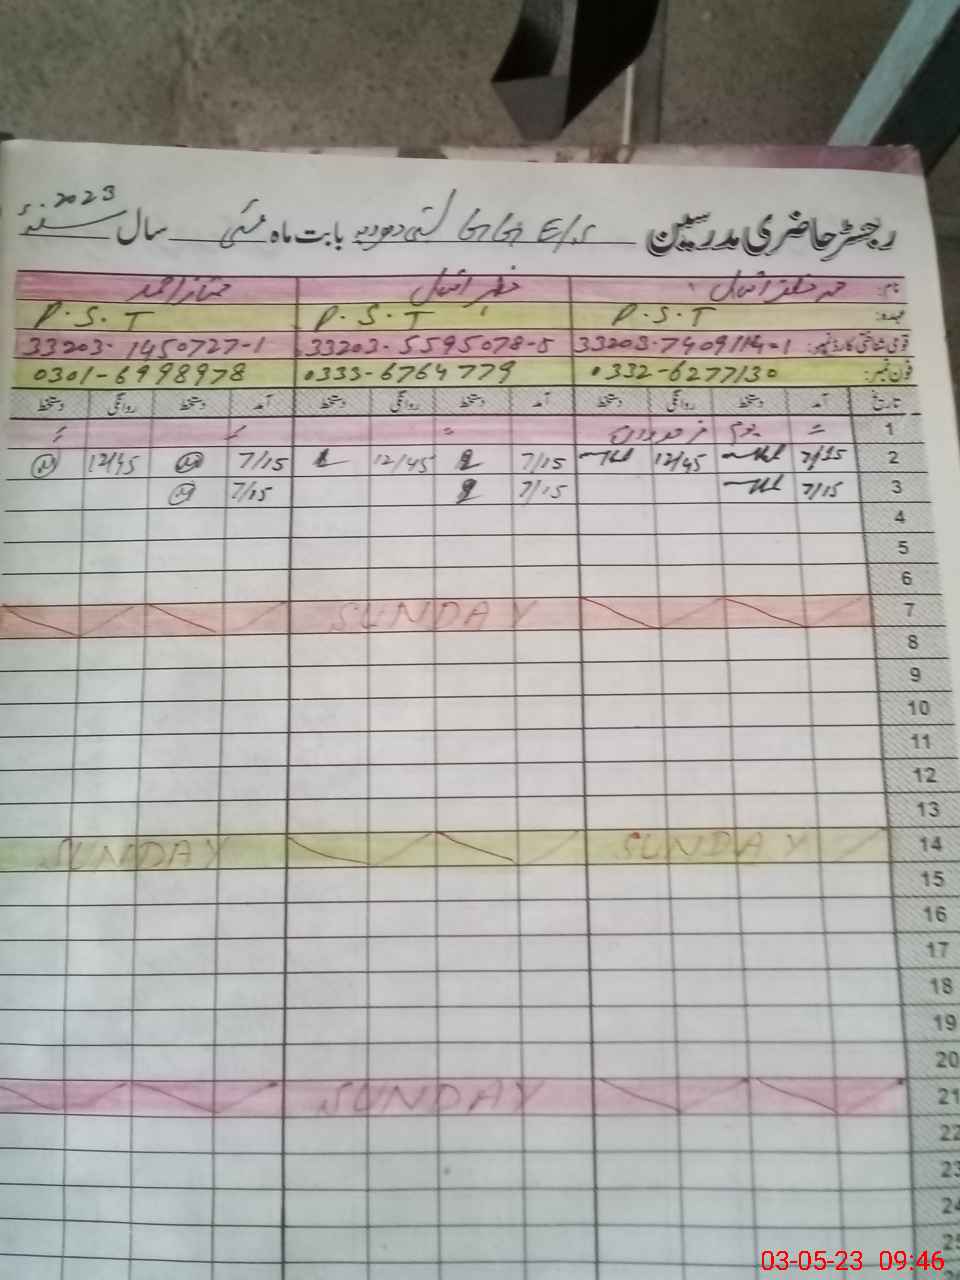 رجسٹر حاضری مدرسین بابت ماہ مئی سال 2023ء
نام:
عہدہ: P.S.T P.S.T P.S.T
قومی شناختی کارڈ نمبر: 33203-5595078-5 33203-1450727-1
فون نمبر: 0332-6277130 0333-6764779 0301-6998978
تاریخ آمد دستخط روانگی دستخط آمد دستخط روانگی دستخط آمد دستخط روانگی دستخط
1 یوم مزدوراں
2 7/15 12/45 7/15 12/45 7/15 12/45
3 7/15 7/15 7/15
4
5
6
7 SUNDAY
8
9
10
11
12
13
14 SUNDAY SUNDAY
15
16
17
18
19
20
21 SUNDAY
22
23
24
03-05-23 09:46